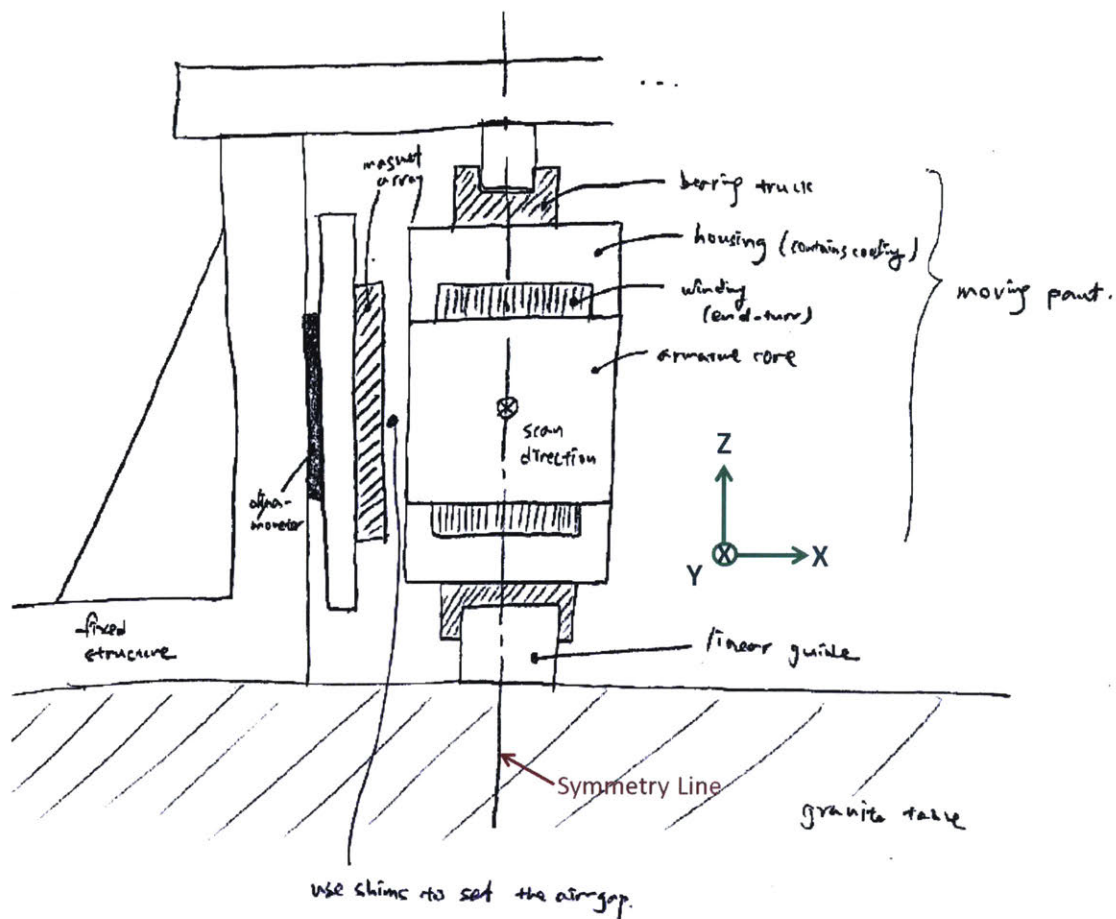 ...
magnet
array
bearing truck
housing (contains cooling)
winding
(end-turn)
armature core
moving part.
scan
direction
Z
Y
X
dyna-
mometer
fixed
structure
linear guide
Symmetry Line
granite table
use shims to set the airgap.